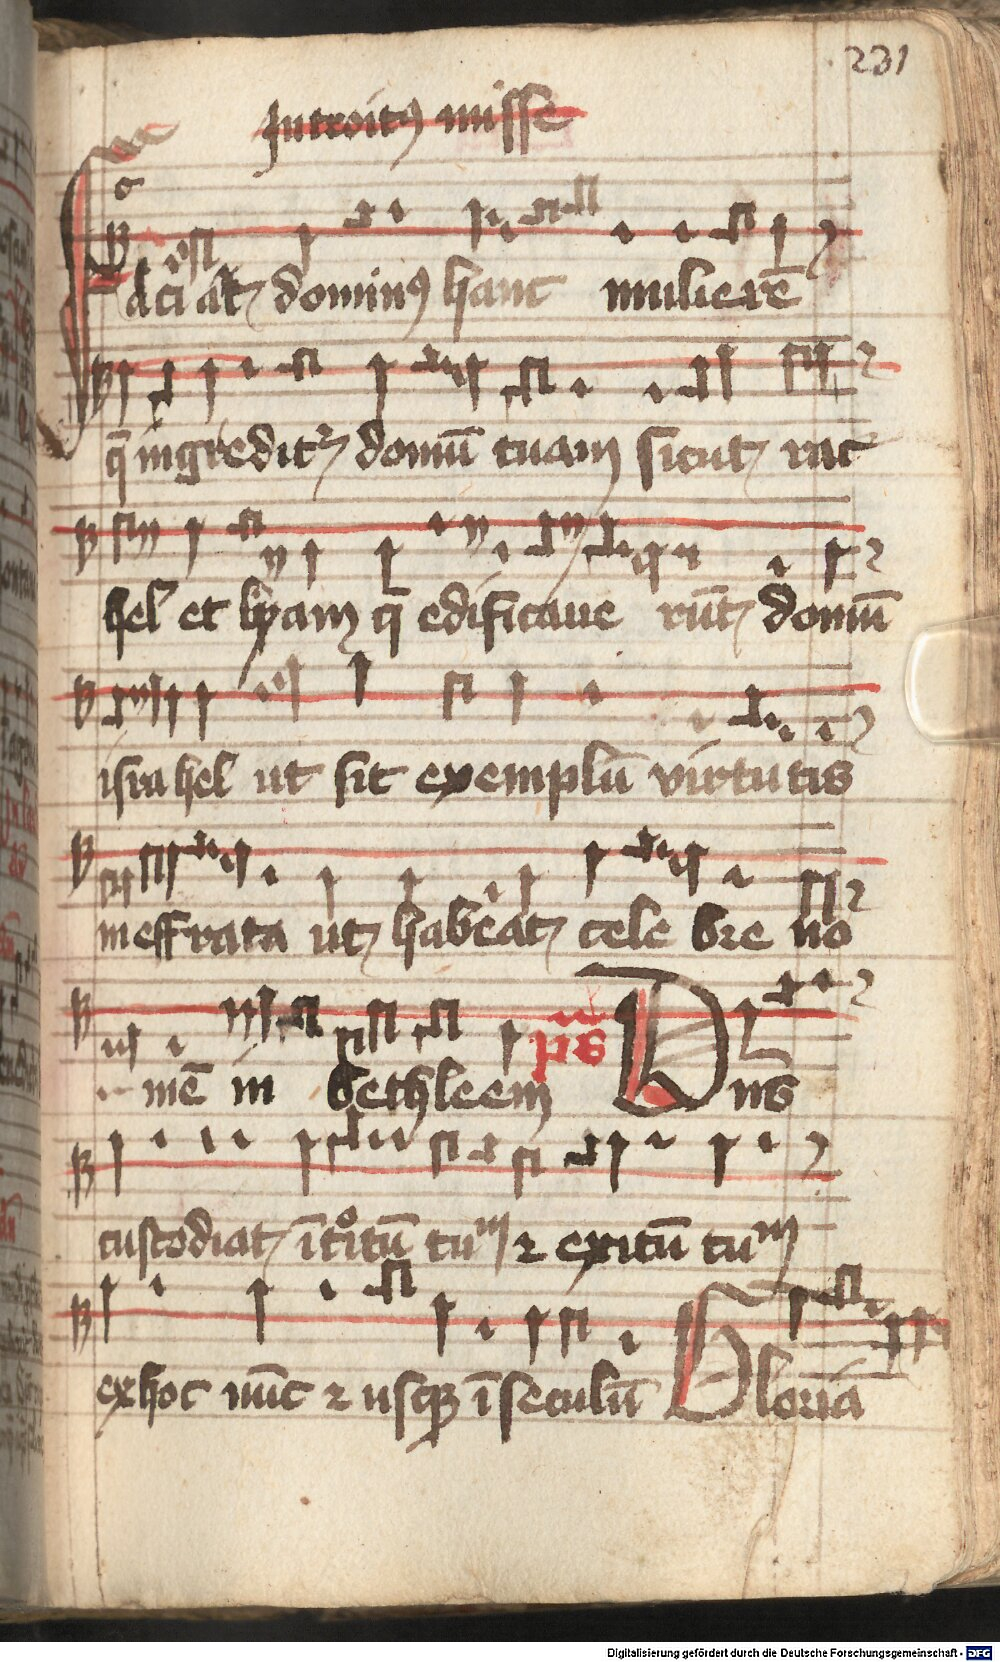 231
Introitꝰ misse
Faciat dominꝰ hanc mulierē
q̄ ingredit᷑ domū tuam sicut rac
hel et lyam q̄ edificaue rūt domū
israhel ut sit exemplū virtutis
in effrata ut habeat cele bre no
mē in bethleem ps̄ Dn̄s
custodiat ītͦitū tuᵐ ⁊ exitū tuᵐ
ex hoc nūc ⁊ usqꝫ ī seculū Gloria
Digitalisierung gefördert durch die Deutsche Forschungsgemeinschaft - DFG